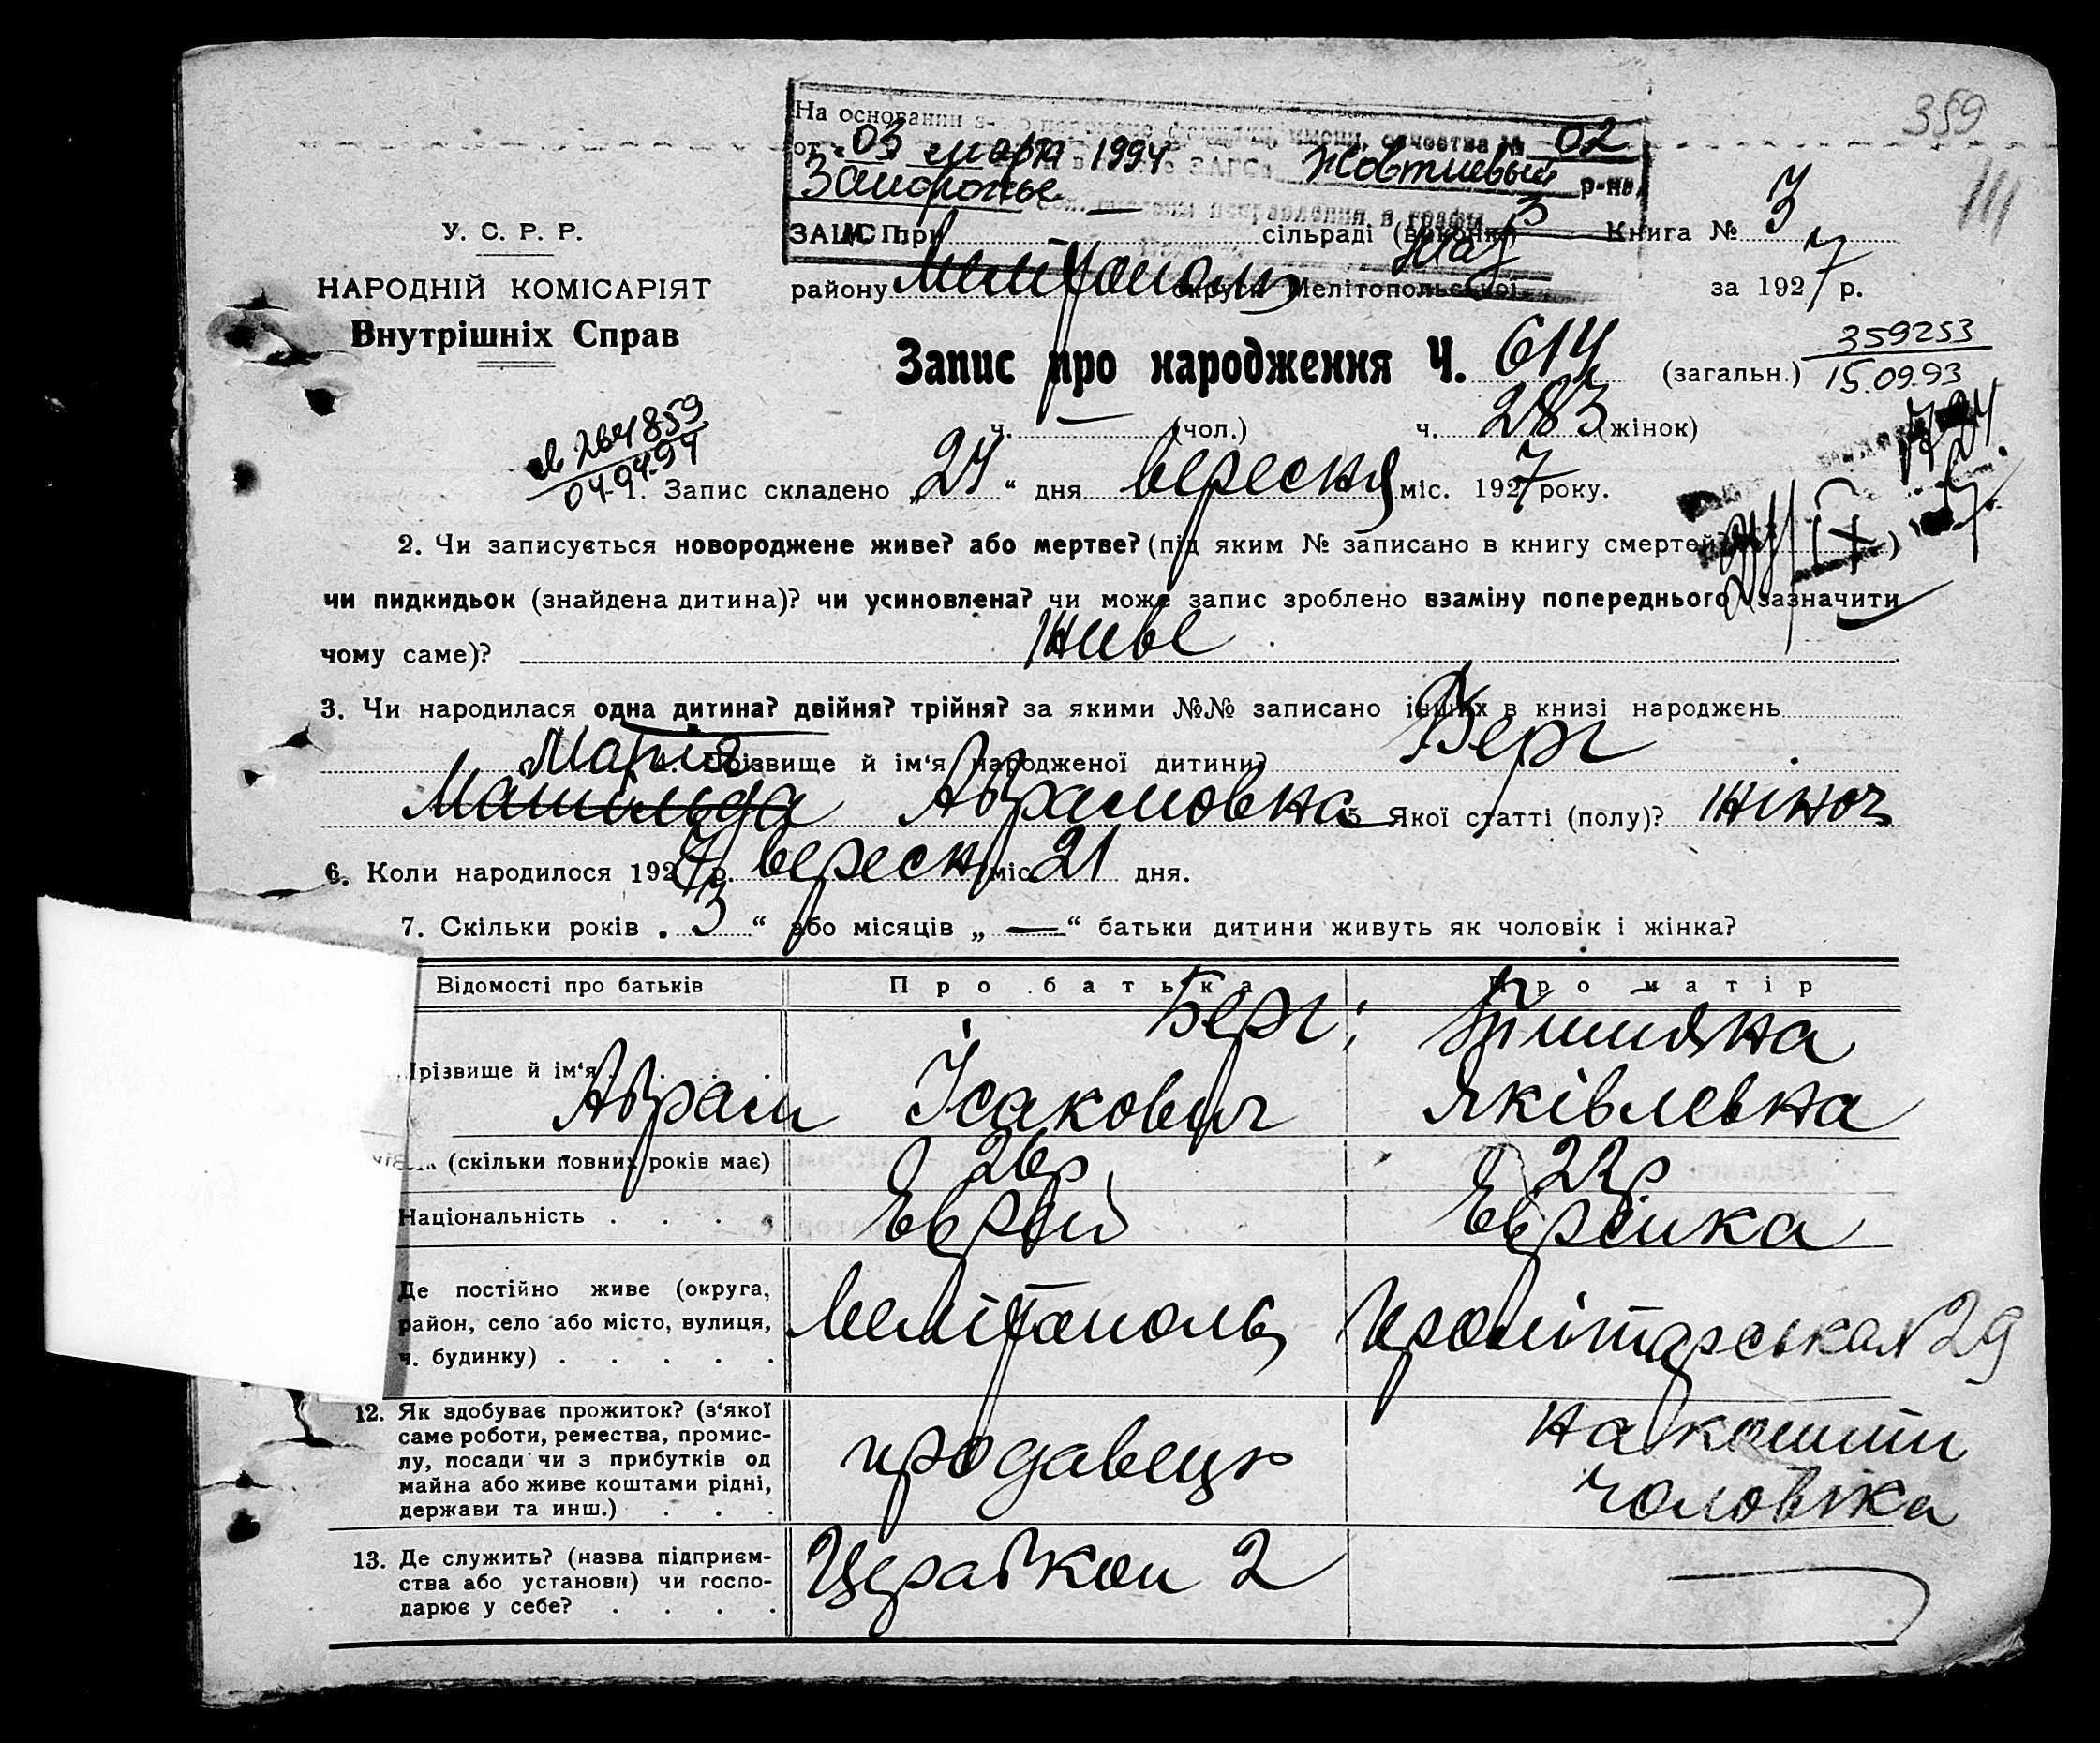 359
На основании
от 03 марта 1994 ЗАГСа Жовтневый р-на,
02
Запорожье
111
У. С. Р. Р.
НАРОДНІЙ КОМІСАРІЯТ
Внутрішніх Справ
при сільраді Книга № 3
району Мелітополь округи Мелітопольської за 1927 р.
Запис про народження Ч. 614 (загальн.)
359253
15.09.93
ч. — (чол.) ч. 283 (жінок)
264859
04.04.94
1. Запис складено „24“ дня вересня міс. 1927 року.
2. Чи записується новороджене живе? або мертве? (під яким № записано в книгу смертей? )
чи пидкидьок (знайдена дитина)? чи усиновлена? чи може запис зроблено взаміну попереднього (зазначити
чому саме)? живе
3. Чи народилася одна дитина? двійня? трійня? за якими №№ записано інших в книзі народжень
4. Прізвище й ім‘я народженої дитини? Берг
Марія
Матильда Абрамовна 5. Якої статті (полу)? жіноч
6. Коли народилося 1927 р. вересн міс. 21 дня.
7. Скільки років „3“ або місяців „—“ батьки дитини живуть як чоловік і жінка?
Відомості про батьків Про батька Про матір
Прізвище й ім‘я Берг Абрам Ісакович Яківлевна
(скільки повних років має) 26р 22р
Національність Еврей Еврейка
Де постійно живе (округа,
район, село або місто, вулиця,
ч. будинку) Мелітополь Пролітарська № 29
12. Як здобуває прожиток? (з‘якої
саме роботи, ремества, промис-
лу, посади чи з прибутків од
майна або живе коштами рідні,
держави та инш.) продавець на кошти чоловіка
13. Де служить? (назва підприєм-
ства або установи) чи госпо-
дарює у себе? Церабкоп 2 —